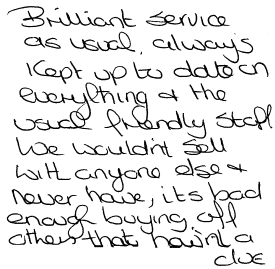 Brilliant service
as usual, always
Kept up to date on
everything & the
usual friendly staff
We wouldn't sell
with anyone else &
never have, its bad
enough buying off
others that hasn't a
clue